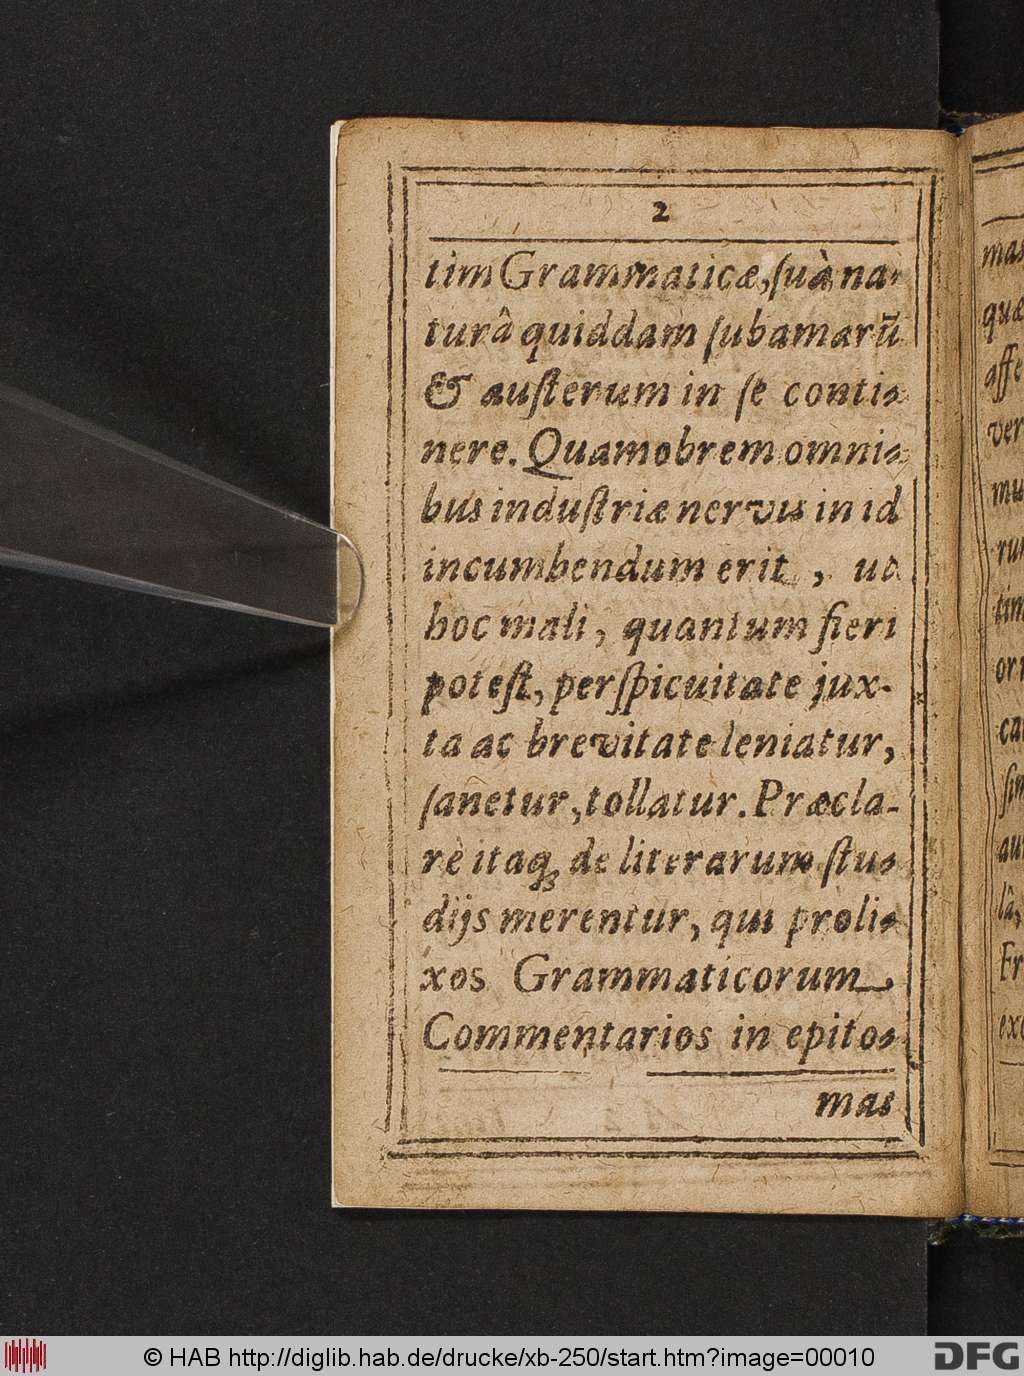 2
tim Grammaticæ, ſuà na-
turâ quiddam ſubamarũ
& auſterum in ſe conti-
nere. Quamobrem omni-
bus induſtriæ nervis in id
incumbendum erit, ut
hoc mali, quantum fieri
poteſt, perſpicuitate jux-
ta ac brevitate leniatur,
ſanetur, tollatur. Præcla-
rè itaq; de literarum ſtu-
dijs merentur, qui proli-
xos Grammaticorum
Commentarios in epito-
mas
mas
quæ
affe
ver
mu
run
tim
orn
ca
ſim
au
lâ,
Er
exc
© HAB http://diglib.hab.de/drucke/xb-250/start.htm?image=00010
DFG